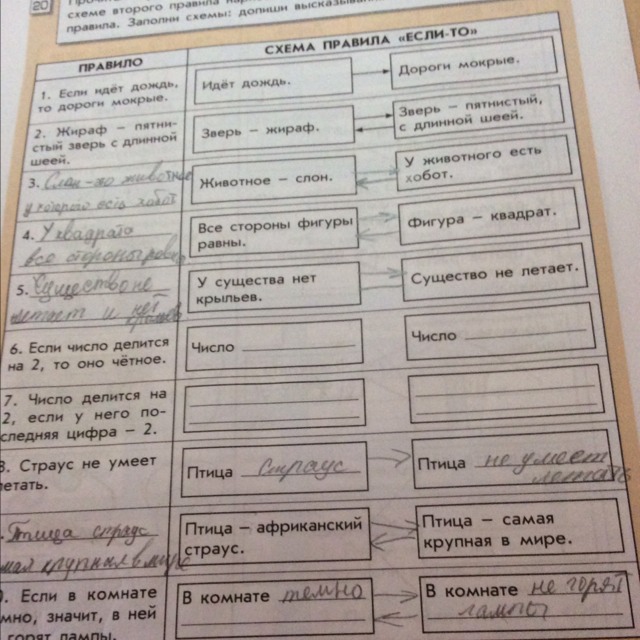 20
схеме второго правила
правила. Заполни схемы: допиши
ПРАВИЛО
СХЕМА ПРАВИЛА «ЕСЛИ-ТО»
1. Если идёт дождь,
то дороги мокрые.
Идёт дождь.
Дороги мокрые.
2. Жираф – пятни-
стый зверь с длинной
шеей.
Зверь – жираф.
Зверь – пятнистый,
с длинной шеей.
3. Слон-это животное
у которого есть хобот
Животное – слон.
У животного есть
хобот.
4. У квадрата
все стороны равны
Все стороны фигуры
равны.
Фигура – квадрат.
5. Существо не
летает и нет
крыльев
У существа нет
крыльев.
Существо не летает.
6. Если число делится
на 2, то оно чётное.
Число
Число
7. Число делится на
2, если у него по-
следняя цифра – 2.
8. Страус не умеет
летать.
Птица страус
Птица не умеет
летать
Птица страус
самая крупная в мире
Птица – африканский
страус.
Птица – самая
крупная в мире.
. Если в комнате
мно, значит, в ней
горят лампы.
В комнате темно
В комнате не горят
лампы